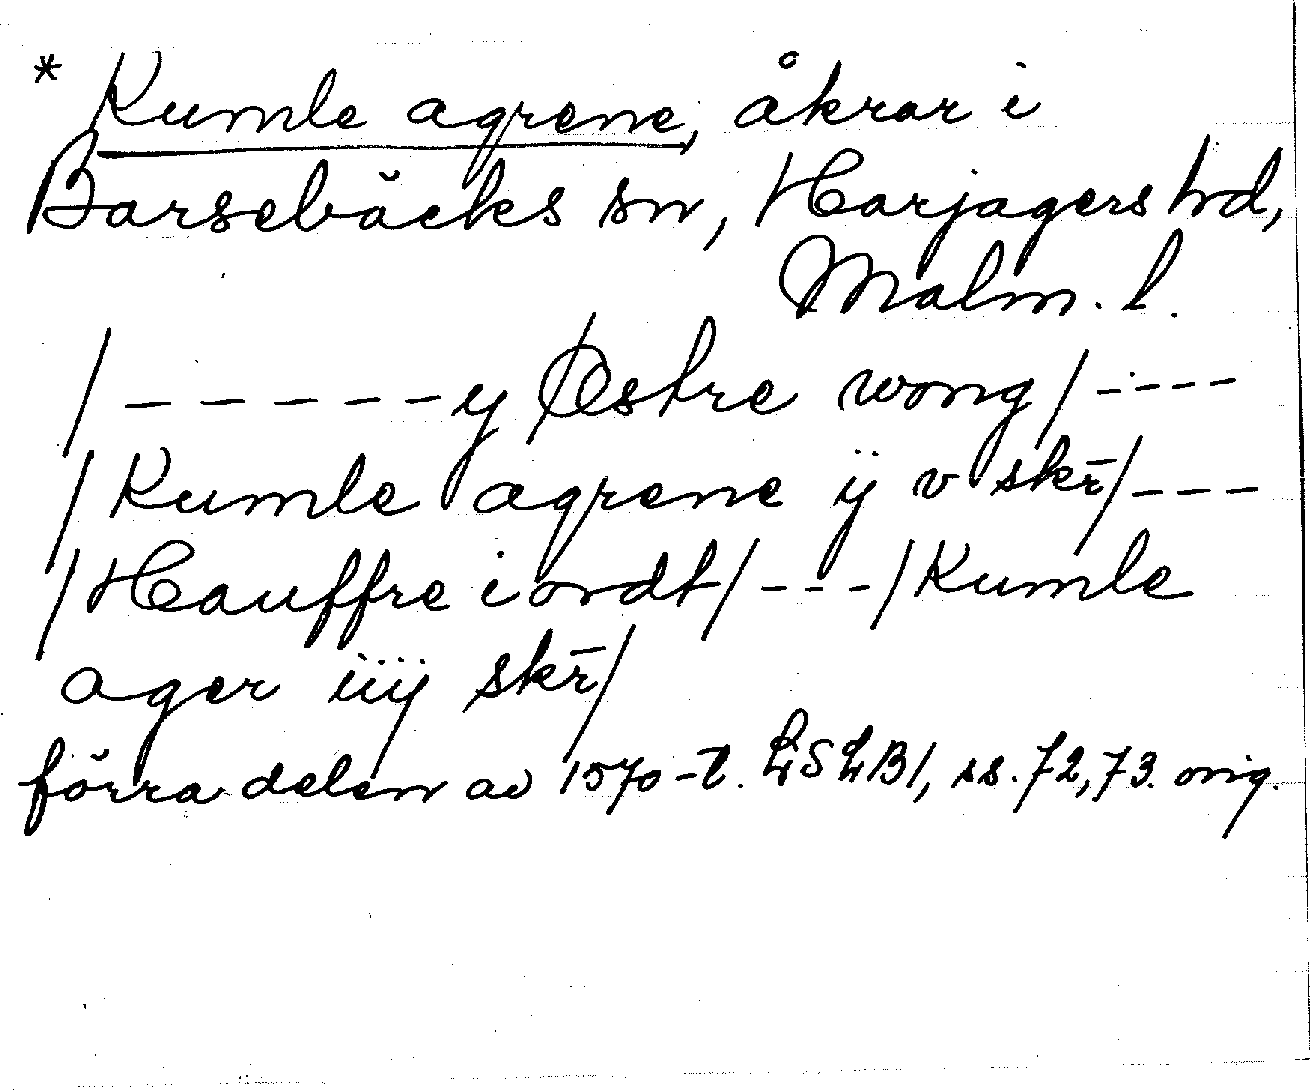 * Kumle agrene, åkrar i
Barsebäcks sn, Harjagers hd,
Malm. l.
/ - - - - - y Østre wong / - - - -
/ Kumle agrene ÿ v skr̄ / - - -
/ Hauffre iordt / - - - / Kumle
ager iiÿ skr̄ /
förra delen av 1570-t. LSLB1, ss. 72, 73. orig.